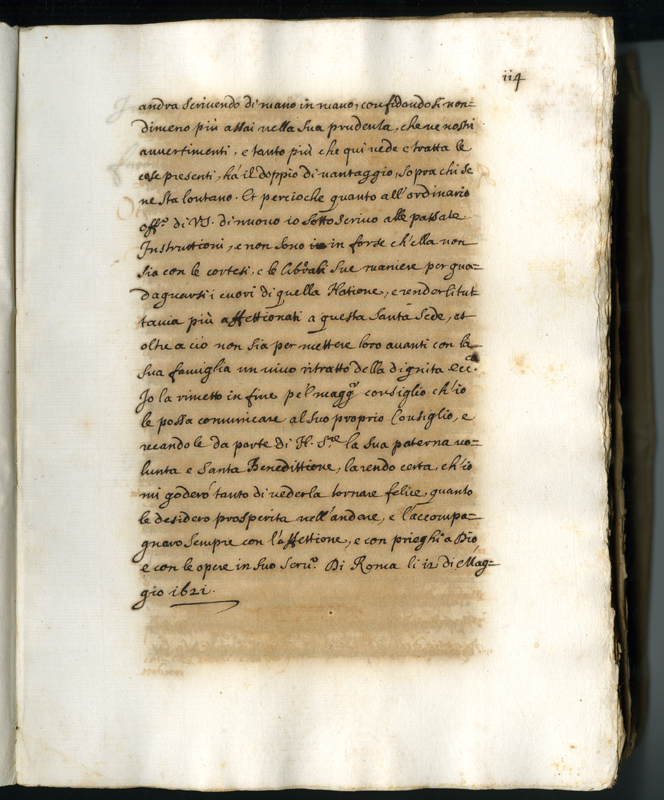 114
andra scrivendo di mano in mano, confidandosi non=
dimeno più assai nella sua prudenza, che ne nostri
avvertimenti, e tanto più che qui vede e tratta le
cose presenti, hà il doppio di vantaggio, sopra chi se
ne sta lontano. Et percioche quanto all'ordinario
off.º di VS. di nuovo io sottoscrivo alle passate
Instruttioni, e non sono in forse ch'ella non
sia con le cortesi, e le liberali sue maniere per gua=
dagnarsi i cuori di quella Natione, e renderli tut
tavia più affettionati a questa Santa Sede, et
oltre a ciò non sia per mettere loro avanti con la
sua famiglia un vivo ritratto della dignità ecc.
Io la rimetto in fine pe'l magg.r consiglio ch'io
le possa comunicare al suo proprio Consiglio, e
recandole da parte di N. S.re la sua paterna vo=
lunta e santa Benedittione, la rendo certa, ch'io
mi goderò tanto di vederla tornare felice, quanto
le desidero prosperità nell'andare, e l'accompa=
gnarò sempre con l'affettione, e con prieghi a Dio
e con le opere in suo serv.º Di Roma li 12 di Mag=
gio 1621.